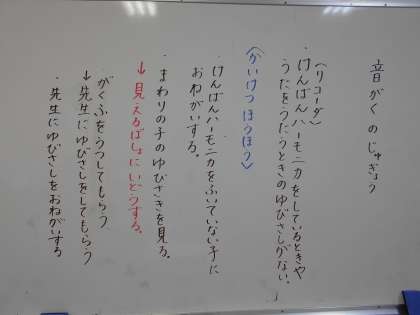 音がくのじゅぎょう
(リコーダ)
・けんばんハーモニカをしているときや
うたをうたうときのゆびさしがない。
〈かいけつほうほう〉
・けんばんハーモニカをふいていない子に
おねがいする。
・まわりの子のゆびさきを見る。
→見えるばしょにいどうする。
・がくふをうつしてもらう
→先生にゆびさしをしてもらう
・先生にゆびさしをおねがいする